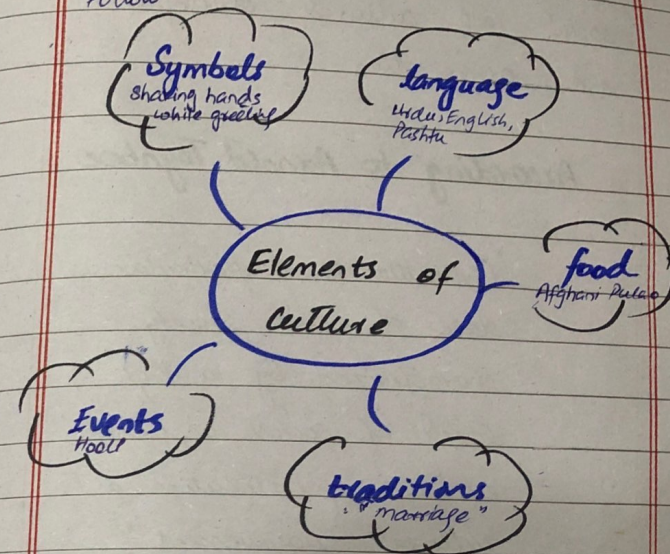 Symbols
Shaking hands
white greeting
language
Urdu, English,
Pashtu
Elements of
culture
food
Afghani Pulao
Events
Hooli
traditions
: "marriage"